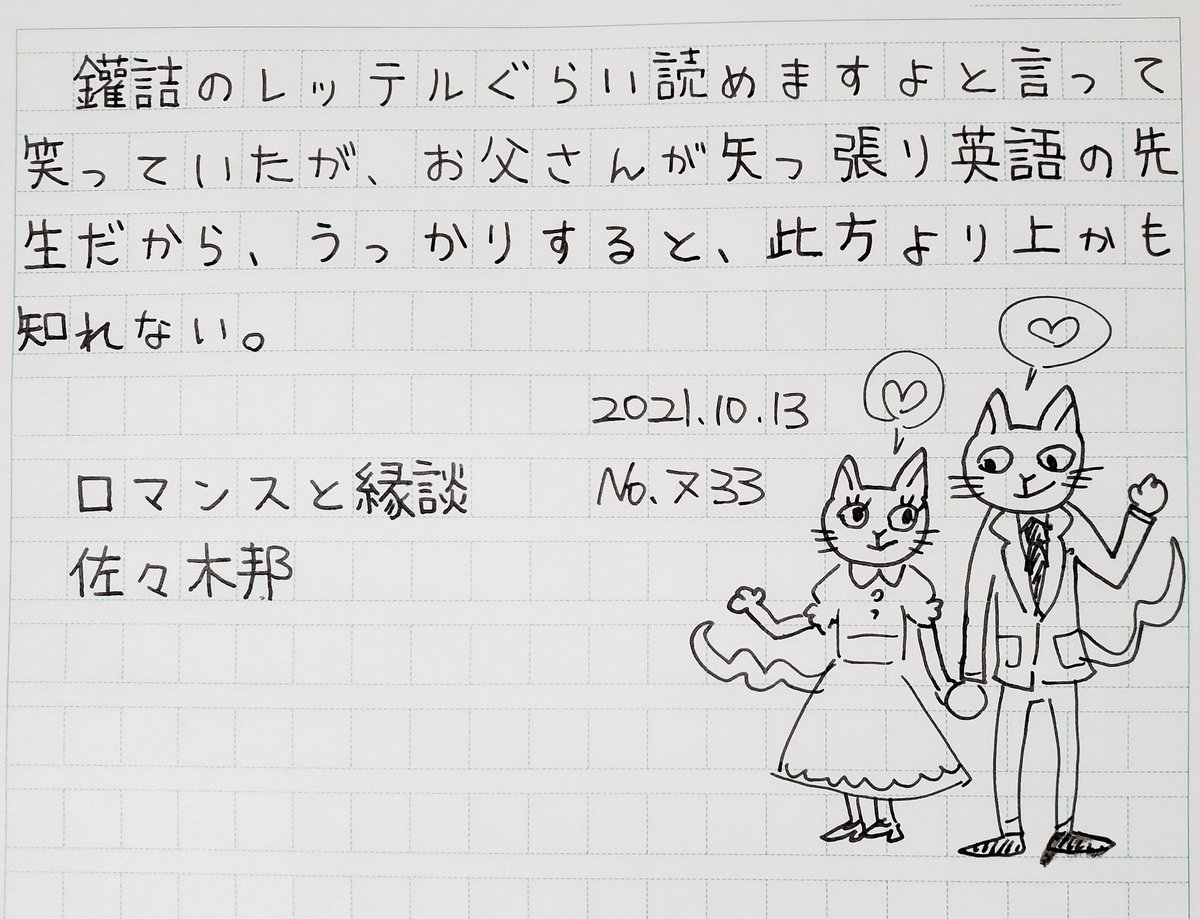 鑵詰のレッテルぐらい読めますよと言って
笑っていたが、お父さんが矢っ張り英語の先
生だから、うっかりすると、此方より上かも
知れない。
2021.10.13
ロマンスと縁談
No.ヌ33
佐々木邦